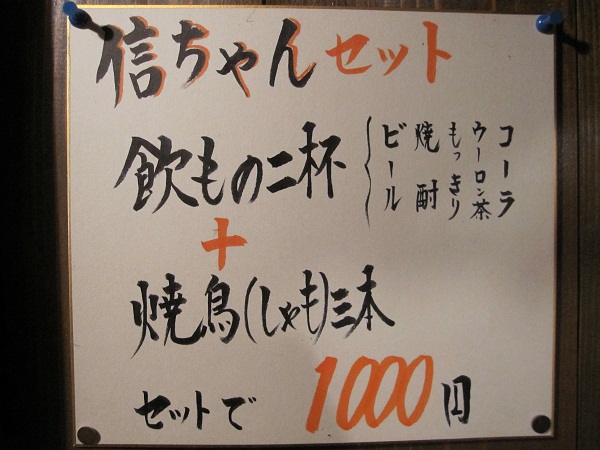 信ちゃんセット
飲もの二杯
コーラ
ウーロン茶
もっきり
焼酎
ビール
+
焼鳥(しゃも)三本
セットで 1000円